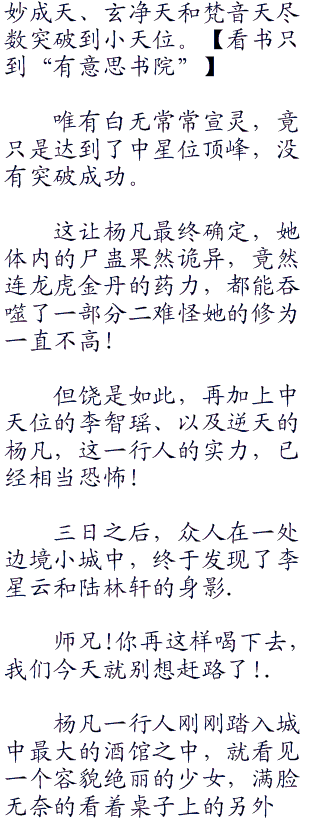 妙成天、玄净天和梵音天尽
数突破到小天位。【看书只
到“有意思书院”】
唯有白无常常宣灵，竟
只是达到了中星位顶峰，没
有突破成功。
这让杨凡最终确定，她
体内的尸蛊果然诡异，竟然
连龙虎金丹的药力，都能吞
噬了一部分二难怪她的修为
一直不高！
但饶是如此，再加上中
天位的李智瑶、以及逆天的
杨凡，这一行人的实力，已
经相当恐怖！
三日之后，众人在一处
边境小城中，终于发现了李
星云和陆林轩的身影.
师兄！你再这样喝下去，
我们今天就别想赶路了！.
杨凡一行人刚刚踏入城
中最大的酒馆之中，就看见
一个容貌绝丽的少女，满脸
无奈的看着桌子上的另外